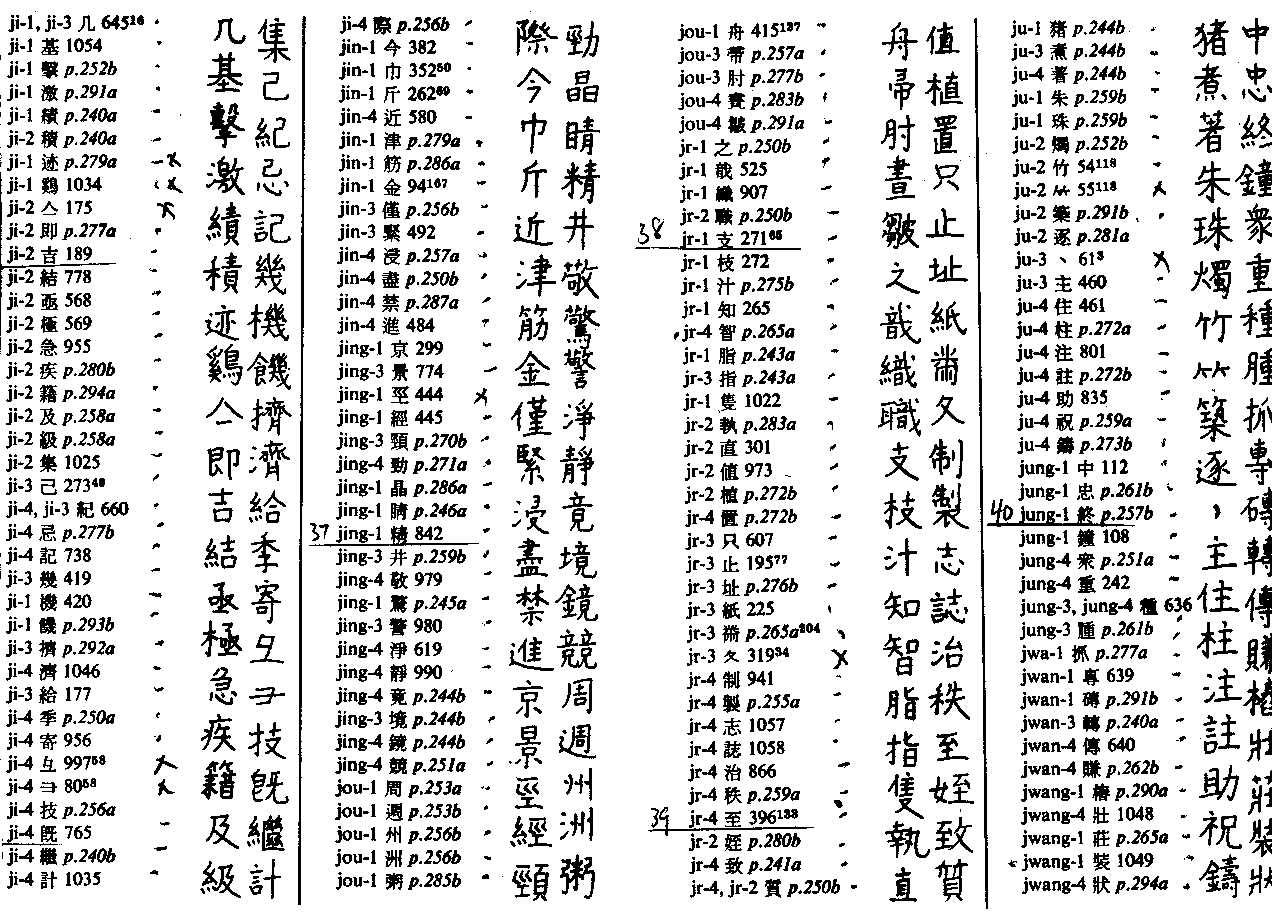 ji-1, ji-3 几 645¹⁶
ji-1 基 1054
ji-1 擊 p.252b
ji-1 激 p.291a
ji-1 績 p.240a
ji-2 積 p.240a
ji-1 迹 p.279a
ji-1 鷄 1034
ji-2 亼 175
ji-2 即 p.277a
ji-2 吉 189
ji-2 結 778
ji-2 亟 568
ji-2 極 569
ji-2 急 955
ji-2 疾 p.280b
ji-2 籍 p.294a
ji-2 及 p.258a
ji-2 級 p.258a
ji-2 集 1025
ji-3 己 273⁴⁹
ji-4, ji-3 紀 660
ji-4 忌 p.277b
ji-4 記 738
ji-3 幾 419
ji-1 機 420
ji-1 饑 p.293b
ji-3 擠 p.292a
ji-4 濟 1046
ji-3 給 177
ji-4 季 p.250a
ji-4 寄 956
ji-4 彑 997⁵⁸
ji-4 彐 80⁵⁸
ji-4 技 p.256a
ji-4 既 765
ji-4 繼 p.240b
ji-4 計 1035
几
基
擊
激
績
積
迹
鷄
亼
即
吉
結
亟
極
急
疾
籍
及
級
集
己
紀
忌
記
幾
機
饑
擠
濟
給
季
寄
彑
彐
技
既
繼
計
ji-4 際 p.256b
jin-1 今 382
jin-1 巾 352⁵⁰
jin-1 斤 262⁶⁹
jin-4 近 580
jin-1 津 p.279a
jin-1 筋 p.286a
jin-1 金 94¹⁶⁷
jin-3 僅 p.256b
jin-3 緊 492
jin-4 浸 p.257a
jin-4 盡 p.250b
jin-4 禁 p.287a
jin-4 進 484
jing-1 京 299
jing-3 景 774
jing-1 巠 444
jing-1 經 445
jing-3 頸 p.270b
jing-4 勁 p.271a
jing-1 晶 p.286a
jing-1 睛 p.246a
37 jing-1 精 842
jing-3 井 p.259b
jing-4 敬 979
jing-1 驚 p.245a
jing-3 警 980
jing-4 淨 619
jing-4 靜 990
jing-4 竟 p.244b
jing-3 境 p.244b
jing-4 鏡 p.244b
jing-4 競 p.251a
jou-1 周 p.253a
jou-1 週 p.253b
jou-1 州 p.256b
jou-1 洲 p.256b
jou-1 粥 p.285b
際
今
巾
斤
近
津
筋
金
僅
緊
浸
盡
禁
進
京
景
巠
經
頸
勁
晶
睛
精
井
敬
驚
警
淨
靜
竟
境
鏡
競
周
週
州
洲
粥
jou-1 舟 415¹³⁷
jou-3 帚 p.257a
jou-3 肘 p.277b
jou-4 晝 p.283b
jou-4 皺 p.291a
jr-1 之 p.250b
jr-1 戠 525
jr-1 織 907
jr-2 職 p.250b
38 jr-1 支 271⁶⁵
jr-1 枝 272
jr-1 汁 p.275b
jr-1 知 265
jr-4 智 p.265a
jr-1 脂 p.243a
jr-3 指 p.243a
jr-1 隻 1022
jr-2 執 p.283a
jr-2 直 301
jr-2 值 973
jr-2 植 p.272b
jr-4 置 p.272b
jr-3 只 607
jr-3 止 195⁷⁷
jr-3 址 p.276b
jr-3 紙 225
jr-3 黹 p.265a²⁰⁴
jr-3 夂 319³⁴
jr-4 制 941
jr-4 製 p.255a
jr-4 志 1057
jr-4 誌 1058
jr-4 治 866
jr-4 秩 p.259a
39 jr-4 至 396¹³³
jr-2 姪 p.280b
jr-4 致 p.241a
jr-4, jr-2 質 p.250b
舟
帚
肘
晝
皺
之
戠
織
職
支
枝
汁
知
智
脂
指
隻
執
直
值
植
置
只
止
址
紙
黹
夂
制
製
志
誌
治
秩
至
姪
致
質
ju-1 猪 p.244b
ju-3 煮 p.244b
ju-4 著 p.244b
ju-1 朱 p.259b
ju-1 珠 p.259b
ju-2 燭 p.252b
ju-2 竹 54¹¹⁸
ju-2 ⺮ 55¹¹⁸
ju-2 築 p.291b
ju-2 逐 p.281a
ju-3 丶 61³
ju-3 主 460
ju-4 住 461
ju-4 柱 p.272a
ju-4 注 801
ju-4 註 p.272b
ju-4 助 835
ju-4 祝 p.259a
ju-4 鑄 p.273b
jung-1 中 112
jung-1 忠 p.261b
40 jung-1 終 p.257b
jung-1 鐘 108
jung-4 衆 p.251a
jung-4 重 242
jung-3, jung-4 種 636
jung-3 腫 p.261b
jwa-1 抓 p.277a
jwan-1 專 639
jwan-1 磚 p.291b
jwan-3 轉 p.240a
jwan-4 傳 640
jwan-4 賺 p.262b
jwang-1 樁 p.290a
jwang-4 壯 1048
jwang-1 莊 p.265a
jwang-1 裝 1049
jwang-4 狀 p.294a
猪
煮
著
朱
珠
燭
竹
⺮
築
逐
丶
主
住
柱
注
註
助
祝
鑄
中
忠
終
鐘
衆
重
種
腫
抓
專
磚
轉
傳
賺
樁
壯
莊
裝
狀